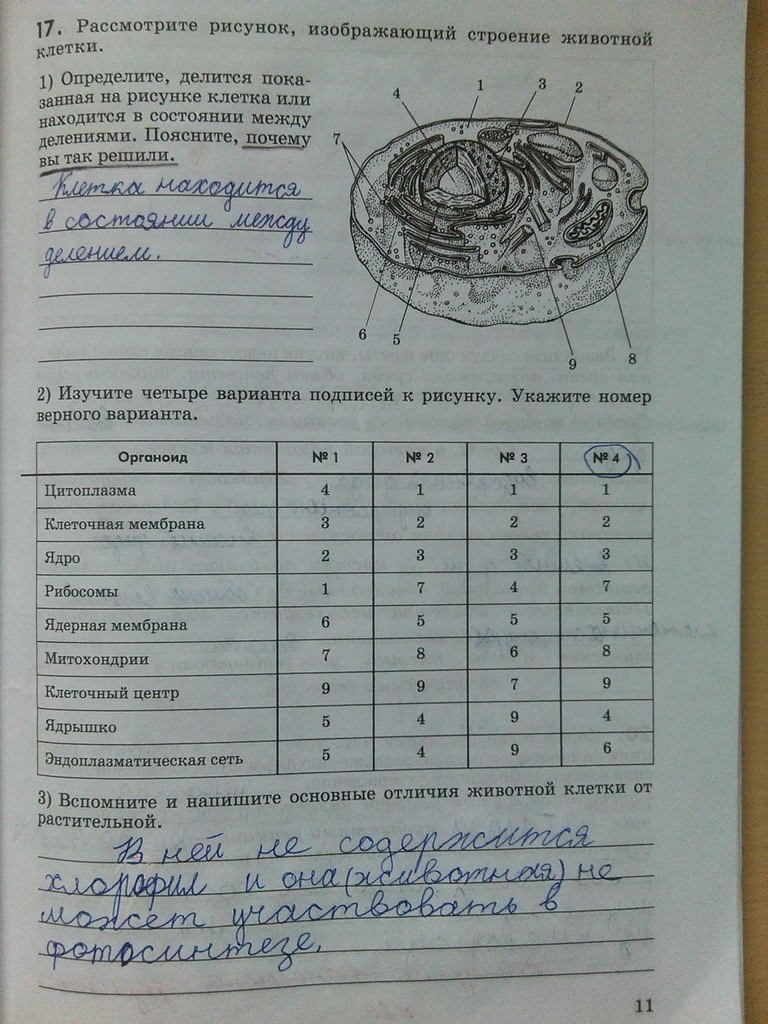 17. Рассмотрите рисунок, изображающий строение животной
клетки.
1) Определите, делится пока-
занная на рисунке клетка или
находится в состоянии между
делениями. Поясните, почему
вы так решили.
Клетка находится
в состоянии между
делением.
4 1 3 2
7
6 5 9 8
2) Изучите четыре варианта подписей к рисунку. Укажите номер
верного варианта.
Органоид № 1 № 2 № 3 № 4
Цитоплазма 4 1 1 1
Клеточная мембрана 3 2 2 2
Ядро 2 3 3 3
Рибосомы 1 7 4 7
Ядерная мембрана 6 5 5 5
Митохондрии 7 8 6 8
Клеточный центр 9 9 7 9
Ядрышко 5 4 9 4
Эндоплазматическая сеть 5 4 9 6
3) Вспомните и напишите основные отличия животной клетки от
растительной.
В ней не содержится
хлорофил и она (животная) не
может участвовать в
фотосинтезе.
11